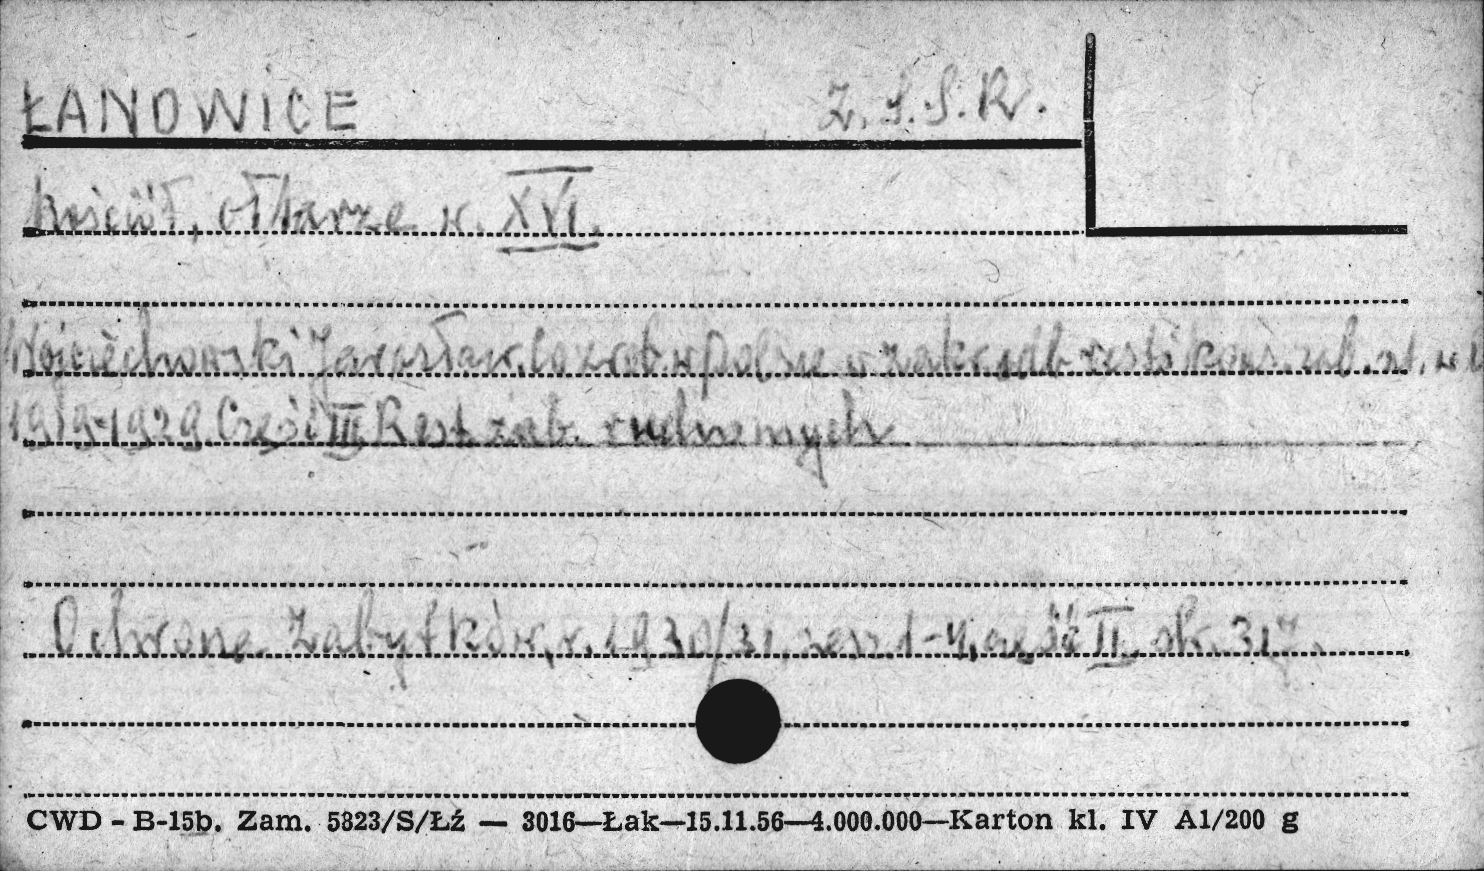 ŁANOWICE Z.S.S.R.
kościół, ołtarze w. XVI.
Wojciechowski Jarosław. Co zrob. w Polsce w zakr. odb. rest. i kons. zab. szt. w l.
1919-1929. Część III Rest. zab. ruchomych
Ochrona Zabytków, r. 1930/31, zesz. 1-4, część II str. 317.
CWD - B-15b. Zam. 5823/S/Łź — 3016—Łak—15.11.56—4.000.000—Karton kl. IV A1/200 g